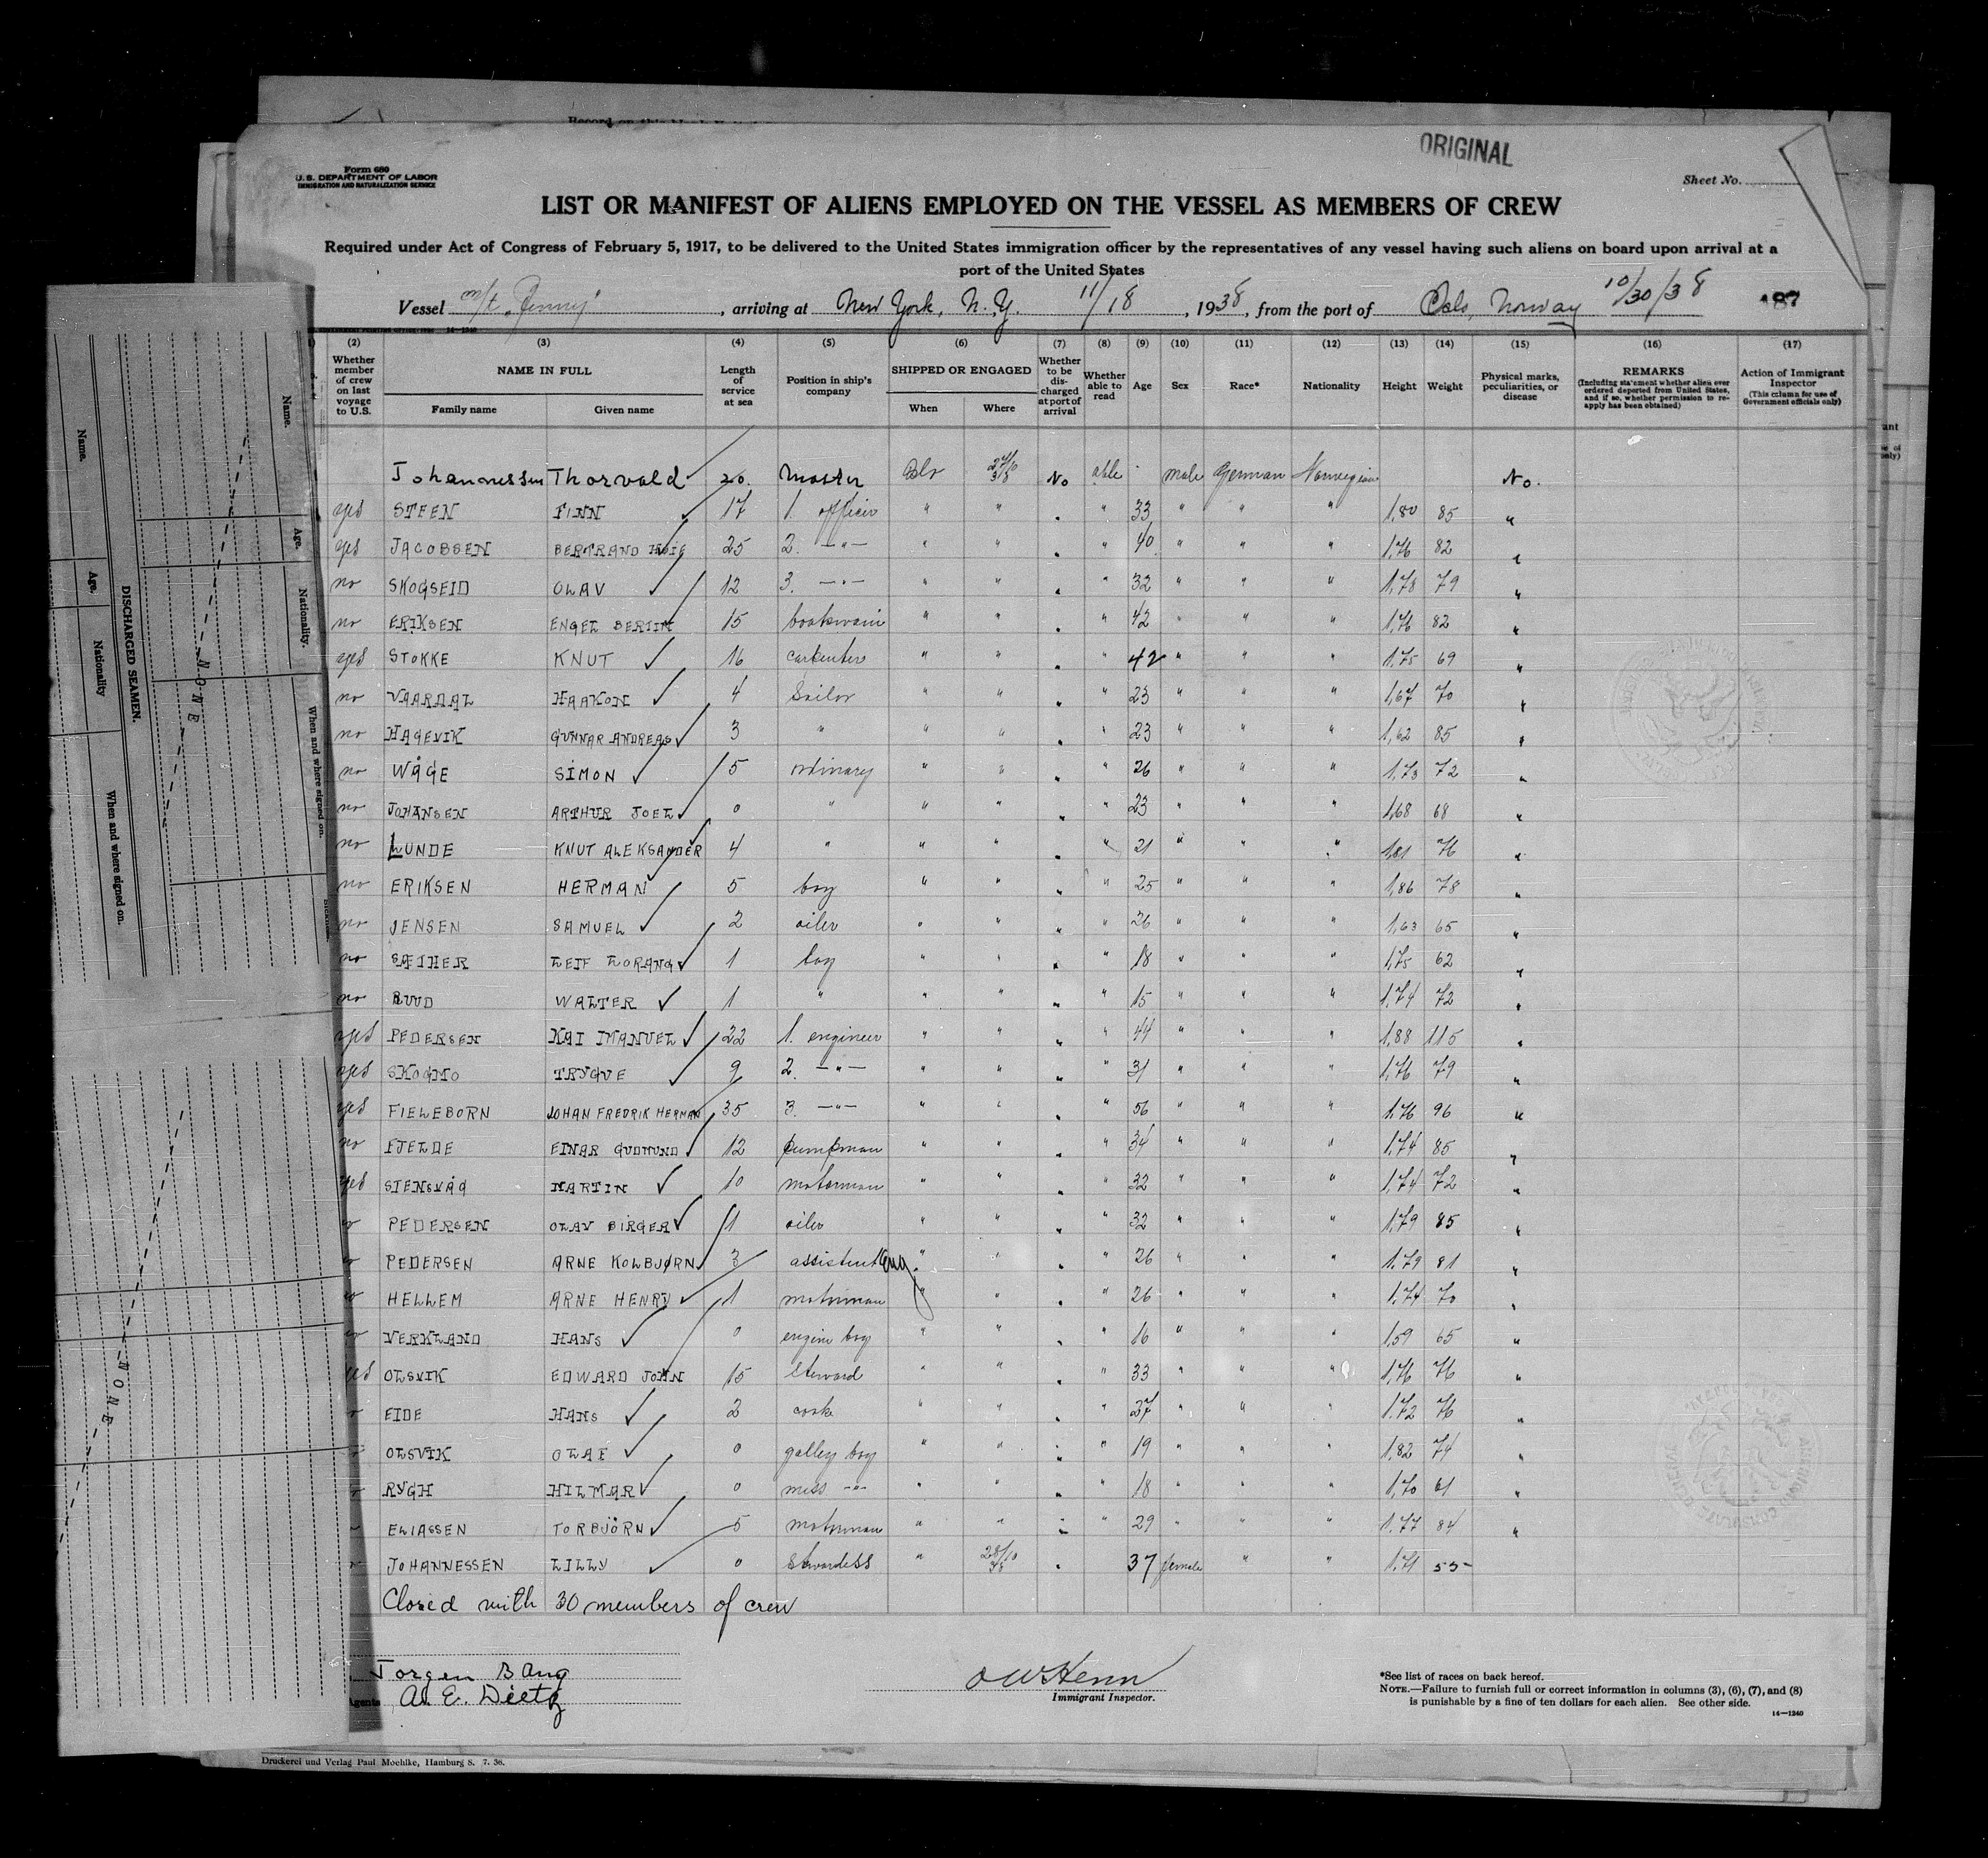 ORIGINAL
Form 680
U. S. DEPARTMENT OF LABOR
IMMIGRATION AND NATURALIZATION SERVICE
Sheet No.
LIST OR MANIFEST OF ALIENS EMPLOYED ON THE VESSEL AS MEMBERS OF CREW
Required under Act of Congress of February 5, 1917, to be delivered to the United States immigration officer by the representatives of any vessel having such aliens on board upon arrival at a
port of the United States
Vessel m/t "Jenny" , arriving at New York, N.Y. 11/18 , 1938 , from the port of Oslo, Norway 10/30/38 187
(2) (3) (4) (5) (6) (7) (8) (9) (10) (11) (12) (13) (14) (15) (16) (17)
Whether member of crew on last voyage to U.S. NAME IN FULL Family name Given name Length of service at sea Position in ship's company SHIPPED OR ENGAGED When Where Whether to be discharged at port of arrival Whether able to read Age Sex Race* Nationality Height Weight Physical marks, peculiarities, or disease REMARKS (Including statement whether alien ever ordered deported from United States, and if so, whether permission to reapply has been obtained) Action of Immigrant Inspector (This column for use of Government officials only)
Johannessen Thorvald 20. Master Oslo 24/10 38 No able male German Norwegian No.
yes STEEN FINN 17 1. officer " " " " 33 " " " 1,80 85 "
yes JACOBSEN BERTRAND 25 2. —"— " " " " 40 " " " 1,76 82 "
no SKOGSEID OLAV 12 3. —"— " " " " 32 " " " 1,78 79 "
no ERIKSEN ENGEL BERTIN 15 boatswain " " " " 42 " " " 1,76 82 "
yes STOKKE KNUT 16 carpenter " " " " 42 " " " 1,75 69 "
no VAARDAL HAAKON 4 Sailor " " " " 23 " " " 1,67 70 "
no HAGEVIK GUNNAR ANDREAS 3 " " " " " 23 " " " 1,62 85 "
no WÅGE SIMON 5 ordinary " " " " 26 " " " 1,73 72 "
no JOHANSEN ARTHUR JOEL 0 " " " " " 23 " " " 1,68 68 "
no LUNDE KNUT ALEKSANDER 4 " " " " " 21 " " " 1,81 76 "
no ERIKSEN HERMAN 5 boy " " " " 25 " " " 1,86 78 "
no JENSEN SAMUEL 2 oiler " " " " 26 " " " 1,63 65 "
no SÆTHER LEIF LORANG 1 boy " " " " 18 " " " 1,75 62 "
no RUUD WALTER 1 " " " " " 15 " " " 1,74 72 "
yes PEDERSEN KAI IMANUEL 22 1. engineer " " " " 44 " " " 1,88 115 "
yes SKOGMO TRYGVE 9 2. —"— " " " " 31 " " " 1,76 79 "
yes FIELEBORN JOHAN FREDRIK HERMAN 35 3. —"— " " " " 56 " " " 1,76 96 "
no FJELDE EINAR GUDMUND 12 pumpman " " " " 34 " " " 1,74 85 "
yes STENSVÅG MARTIN 10 motorman " " " " 32 " " " 1,74 72 "
PEDERSEN OLAV BIRGER 1 oiler " " " " 32 " " " 1,79 85 "
PEDERSEN ARNE KOLBJØRN 3 assistent eng. " " " " 26 " " " 1,79 81 "
HELLEM ARNE HENRY 1 motorman " " " " 26 " " " 1,74 70 "
VERKLAND HANS 0 engine boy " " " " 16 " " " 1,59 65 "
yes OLSVIK EDWARD JOHN 15 Steward " " " " 33 " " " 1,76 76 "
EIDE HANS 2 cook " " " " 27 " " " 1,72 76 "
OLSVIK OLAF 0 galley boy " " " " 19 " " " 1,82 74 "
RYGH HILMAR 0 mess —"— " " " " 18 " " " 1,70 61 "
ELIASSEN TORBJÖRN 5 motorman " " " " 29 " " " 1,77 84 "
JOHANNESSEN LILLY 0 Stwardess " 28/10 38 " 37 female " " 1,71 55
Closed with 30 members of crew
Jorgen Bang
Agents A. E. Dietz
Immigrant Inspector.
*See list of races on back hereof.
NOTE.—Failure to furnish full or correct information in columns (3), (6), (7), and (8)
is punishable by a fine of ten dollars for each alien. See other side.
14—1240
Druckerei und Verlag Paul Moehlke, Hamburg 8. 7. 36.
DISCHARGED SEAMEN.
Name. Age. Nationality When and where signed on.
NONE
Name. Age. Nationality. When and where signed on.
NONE